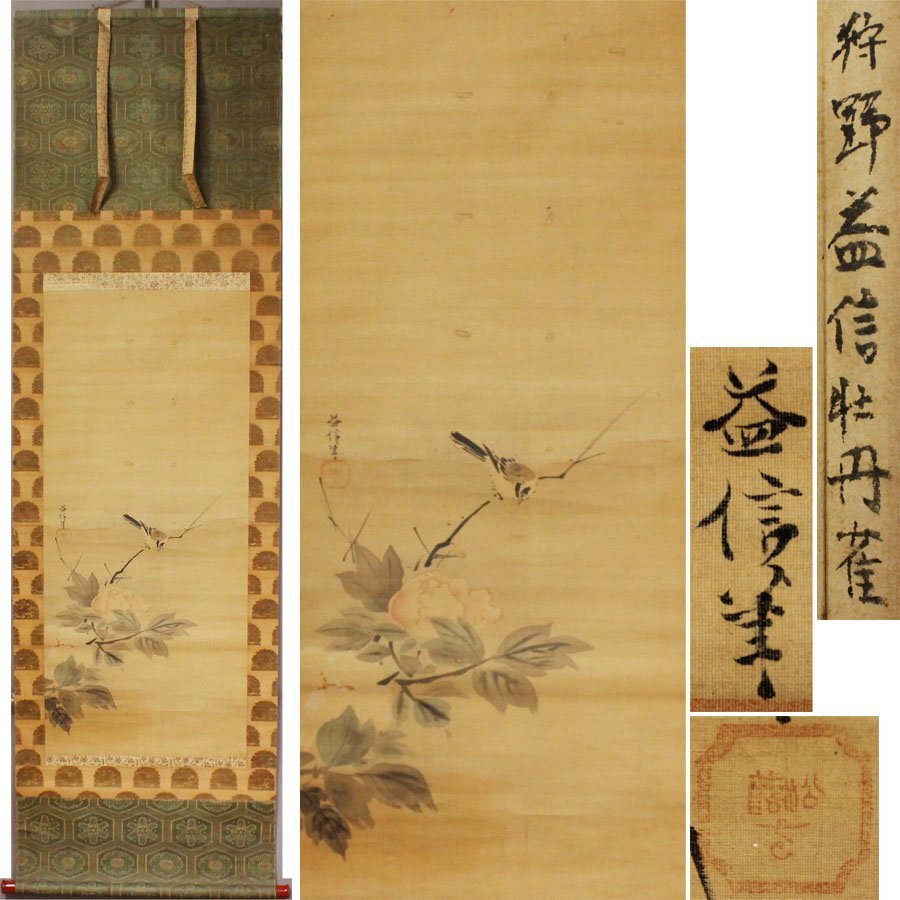 狩野益信牡丹雀
益信筆
益信筆
益信筆